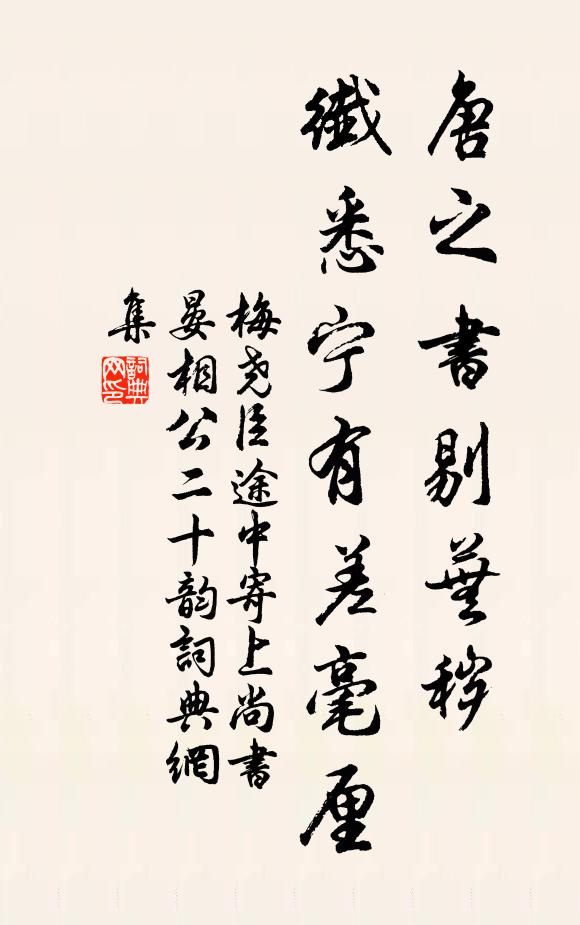 唐之書剔蕪秽
纖悉宁有差毫厘
梅尧臣途中寄上尚書
晏相公二十韵詞典網
集
詞典
网印